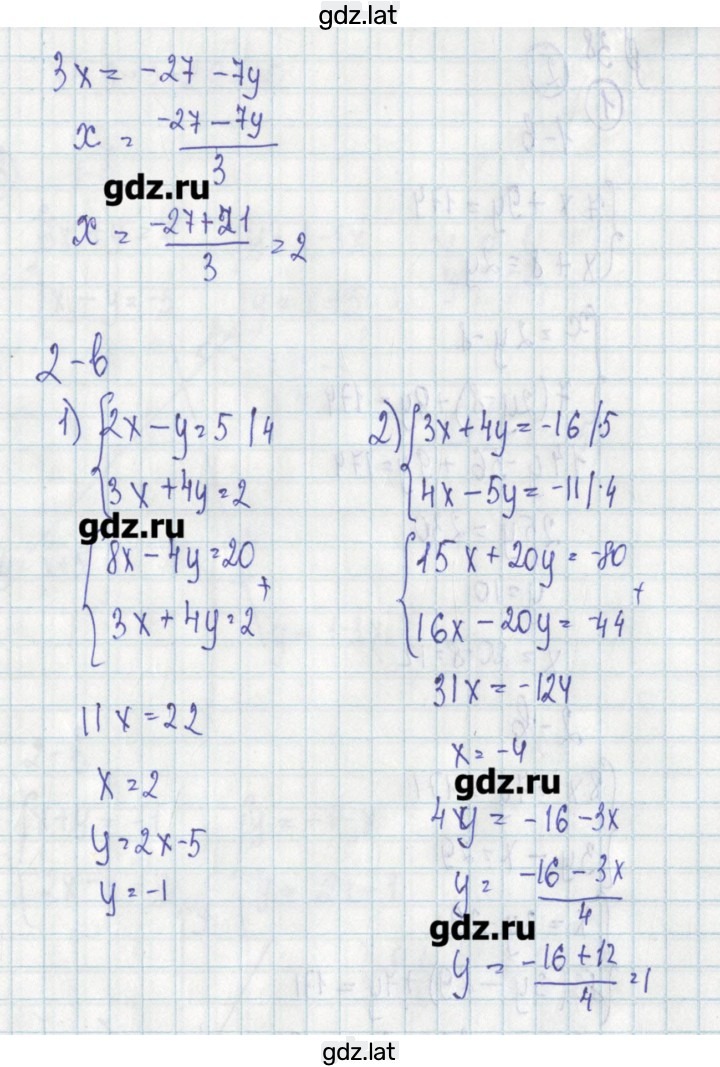 gdz.lat
3x = -27 - 7y
x = (-27 - 7y)/3
gdz.ru
x = (-27 + 21)/3 = 2
2-в
1) { 2x - y = 5 | 4
3x + 4y = 2
gdz.ru
{ 8x - 4y = 20
3x + 4y = 2 +
11x = 22
x = 2
y = 2x - 5
y = -1
2) { 3x + 4y = -16 | 5
4x - 5y = -11 | ·4
{ 15x + 20y = -80
16x - 20y = -44 +
31x = -124
x = -4
gdz.ru
4y = -16 - 3x
y = (-16 - 3x)/4
gdz.ru
y = (-16 + 12)/4 = 1
gdz.lat